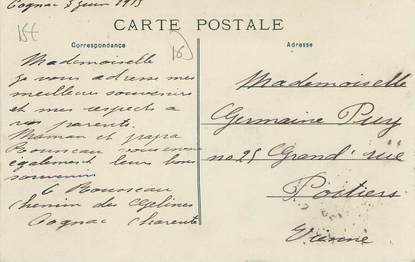 Cognac 3 juin 1913
15€
CARTE POSTALE
Correspondance
Adresse
Mademoiselle
je vous adresse mes
meilleurs souvenirs
et mes respects a
vos parents.
Maman et papa
Bonneau vous envoie
également leur bon
souvenir
G Bonneau
Chemin des
Cognac Charente
Mademoiselle
Germaine Puy
no 25 Grand' rue
Poitiers
Vienne